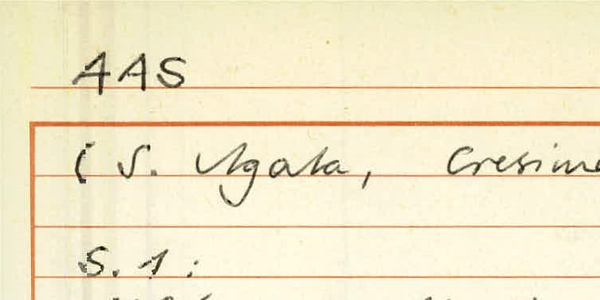 AAS
( S. Agata, Cresime
S. 1 :